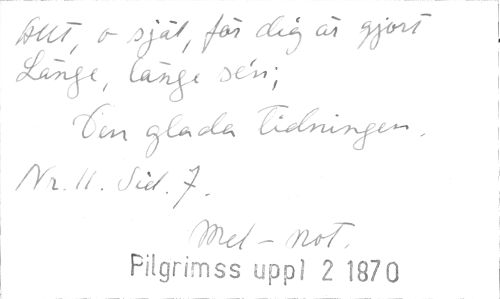 Allt, o själ, för dig är gjort
Länge, länge se'n;
Den glada tidningen.
Nr. 11. Sid. 7.
Mel-not.
Pilgrimss uppl 2 1870